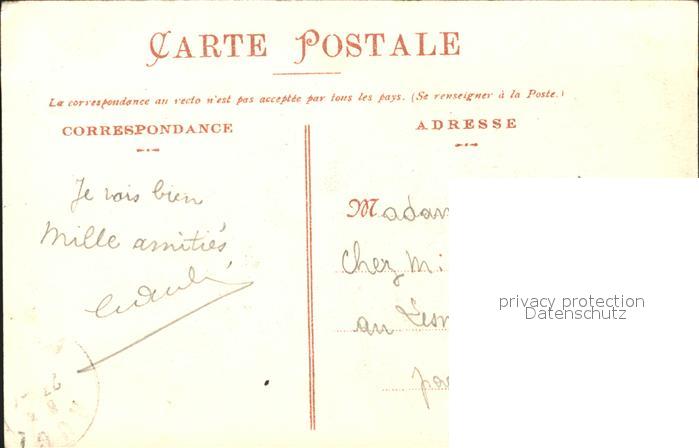 CARTE POSTALE
La correspondance au recto n'est pas acceptée par tous les pays. (Se renseigner à la Poste.)
CORRESPONDANCE
Je vais bien
Mille amitiés
ADRESSE
Madam
Chez
au
privacy protection
Datenschutz